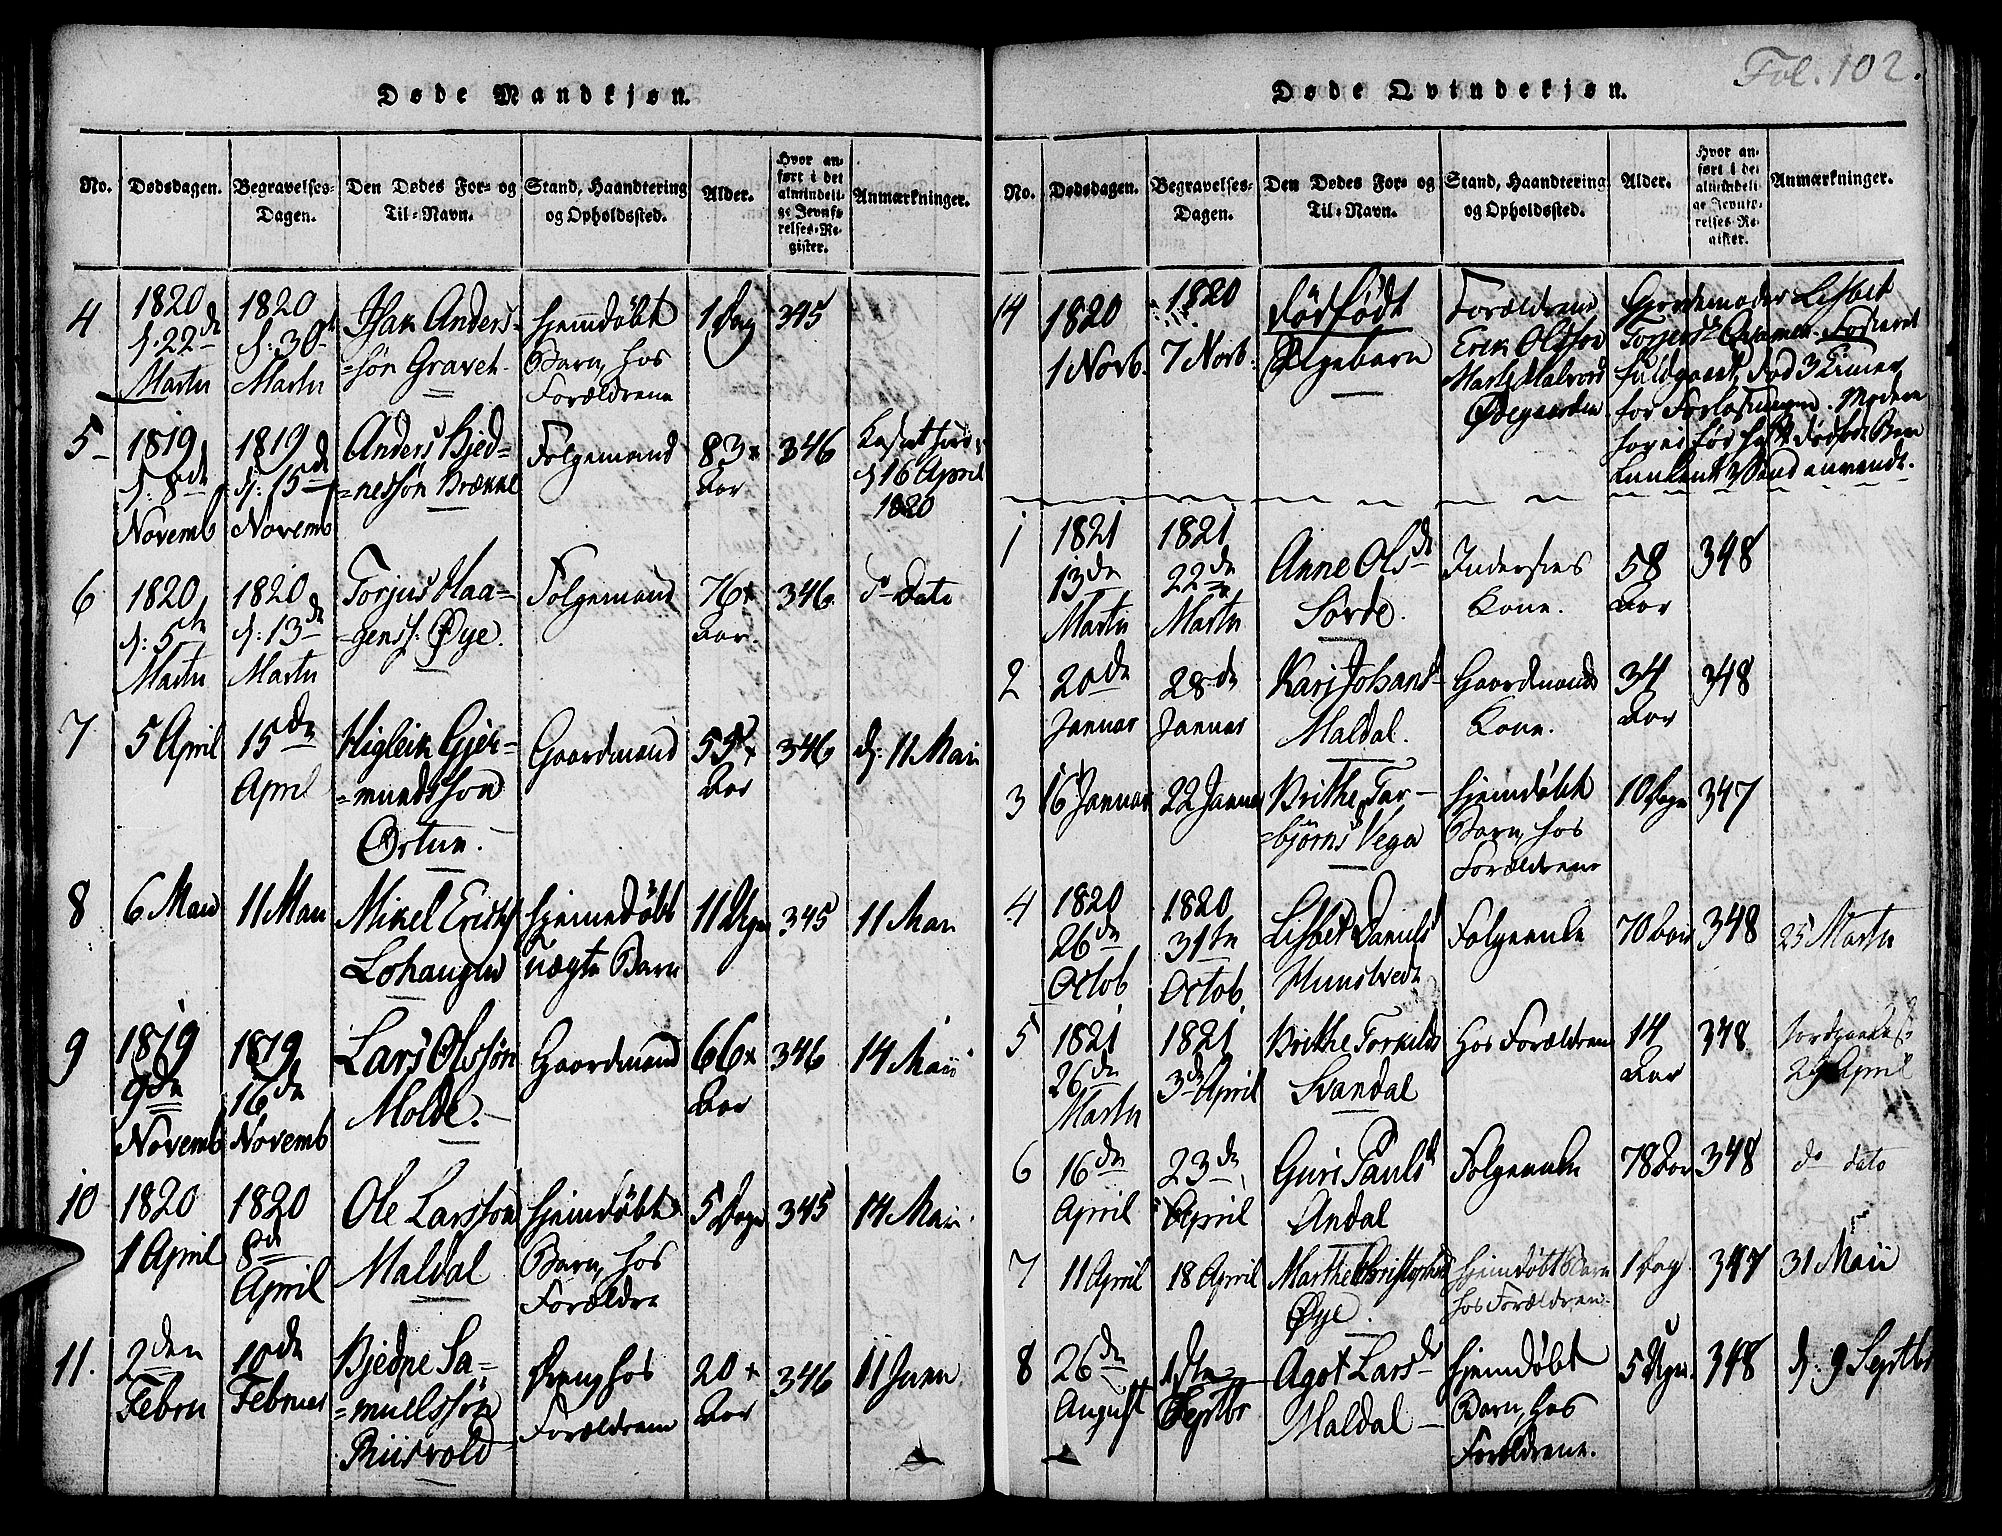 Fol. 102.
Døde Mandkjøn.
No.
Dødsdagen.
Begravelses-
Dagen.
Den Dødes For- og
Til-Navn.
Stand, Haandtering
og Opholdssted.
Alder.
Hvor an-
ført i det
almindeli-
ge Jevnfø-
relses-Re-
gister.
Anmærkninger.
4
1820
d. 22de
Martii
1820
d: 30te
Martii
Isak Anders-
søn Gravet
hjemdöbt
Barn, hos
Forældrene
1 Dag
345
5
1819
d: 8de
Novemb
1819
d: 15de
Novemb
Anders Bjed-
=nessøn Brække
Folgemand
83
Aar
346
d 16 April
1820
6
1820
d: 5te
Martii
1820
d: 13de
Martii
Torjus Haa=
=genss: Øye.
Folgemand
76
Aar.
346
do Dato
7
5 April
15de
April
Higleik Gjer=
=mundssøn
Ørtun.
Gaardmand
55
Aar
346
d: 11 Maii
8
6 Maii
11 Maii
Mikel Erichs
Lohaugen
hjemedöbt
uægte Barn
11 Uger
345
11 Maii
9
1819
9de
Novemb
1819
16de
Novemb
Lars Olssøn
Molde.
Gaardmand
66
Aar
346
14 Maii
10
1820
1 April
1820
8de
April
Ole Larssøn
Maldal
hjemdöbt
Barn, hos
Forældre
5 Dage
345
14 Maii
11.
2den
Febru
10de
Februar
Bjedne Sa=
=muelssøn
Riisvold
Dreng hos
Forældrene
20
Aar
346
11 Juni
Døde Qvindekjøn.
No.
Dødsdagen.
Begravelses-
Dagen.
Den Dødes For- og
Til-Navn.
Stand, Haandtering
og Opholdssted.
Alder.
Hvor an-
ført i det
almindeli-
ge Jevnfø-
relses-Re-
gister.
Anmærkninger.
14
1820
1 Novb.
1820
7 Novb:
dödfödt
Pigebarn
Forældrene
Erik Olssøn
Marte Halvors
Ødegaarden
Gjordemoder Lisbet
fuldgaaet, död 3 Timer
for Forløsningen. Moderen
1
1821
13de
Martii
1821
22de
Martii
Anne Olsd
Sørde.
Inderstes
Kone.
58
Aar
348
2
20de
Januar
28de
Januar
Kari Johansd
Maldal.
Gaardmands
Kone.
34
Aar
348
3
16 Januar
22 Januar
Brithe Tor-
=bjørnsd Vega
hjemdøbt
Barn, hos
Forældrene
10 Dage
347
4
1820
26de
Octob
1820
31te
Octob.
Lisbet Daniels
Hunstvedt
Folgeenke
70 Aar
348
25 Martii
5
1821
26de
Martii
1821
3de April
Brithe Torkilds
Svandal
hos Forældrene
14
Aar
348
29 April
6
16de
April
23de
April
Guri Paulsd
Andal
Folgeenke
78 Aar
348
do dato
7
11 April
18 April
Marthe Christophers
Øye.
hjemdöbt Barn
hos Forældrene
1 Dag
347
31 Maii
8
26de
August
1ste
Septbr
Agot Larsd
Maldal
hjemdöbt
Barn, hos
Forældrene.
5 Uger.
348
d: 9 Septbr